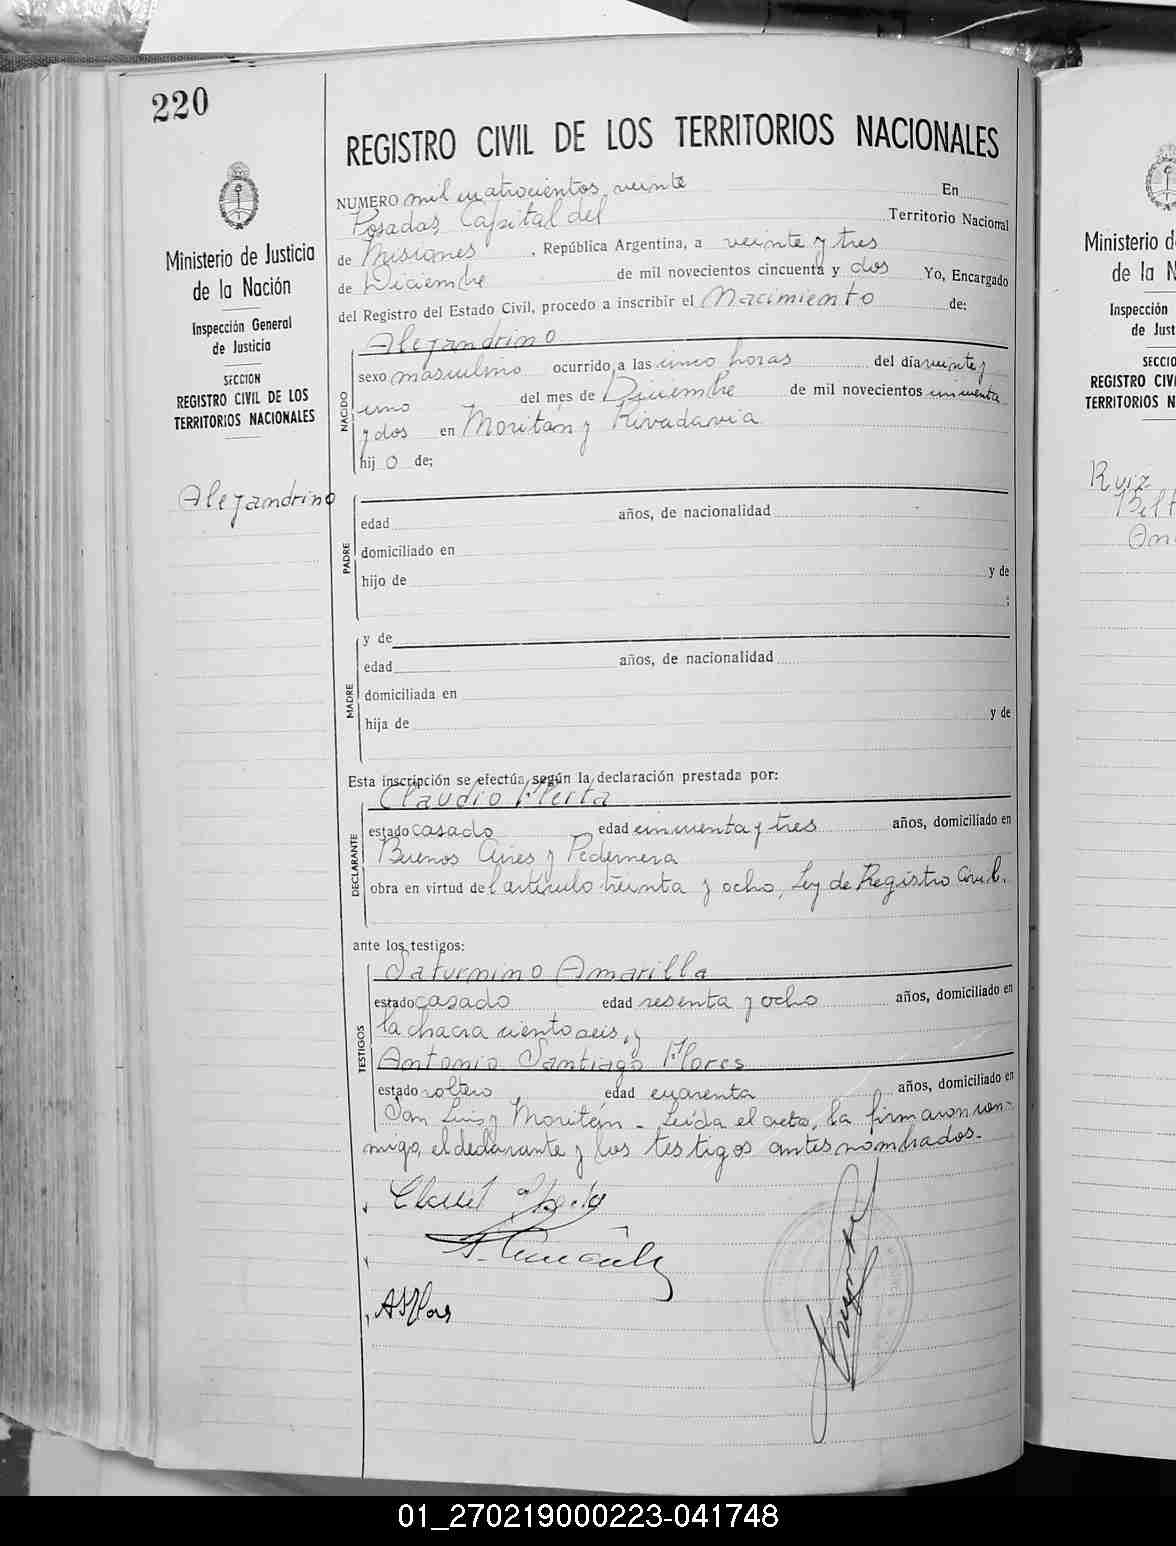 220
REGISTRO CIVIL DE LOS TERRITORIOS NACIONALES
Ministerio de Justicia
de la Nación
Inspección General
de Justicia
SECCION
REGISTRO CIVIL DE LOS
TERRITORIOS NACIONALES
Alejandrino
NUMERO mil cuatrocientos veinte En
Posadas Capital del Territorio Nacional
de Misiones, República Argentina, a veinte y tres
de Diciembre de mil novecientos cincuenta y dos Yo, Encargado
del Registro del Estado Civil, procedo a inscribir el Nacimiento de:
NACIDO
Alejandrino
sexo masculino ocurrido a las cinco horas del día veinte y
uno del mes de Diciembre de mil novecientos cincuenta
y dos en Moritán y Rivadavia
hij o de;
PADRE
edad años, de nacionalidad
domiciliado en
hijo de y de
;
MADRE
y de
edad años, de nacionalidad
domiciliada en
hija de y de
Esta inscripción se efectúa según la declaración prestada por:
DECLARANTE
Claudio
estado casado edad cincuenta y tres años, domiciliado en
Buenos Aires y Pedernera
obra en virtud del artículo treinta y ocho, Ley de Registro Civil.
ante los testigos:
TESTIGOS
Saturnino Amarilla
estado casado edad sesenta y ocho años, domiciliado en
la chacra ciento seis, y
Antonio Santiago Flores
estado soltero edad cuarenta años, domiciliado en
San Luis y Moritán - Leída el acta, la firmaron con-
migo, el declarante y los testigos antes nombrados.-
ASFlores
Ministerio d
de la N
Inspección
de Just
SECCIO
REGISTRO CIVI
TERRITORIOS N
Ruiz
01_270219000223-041748